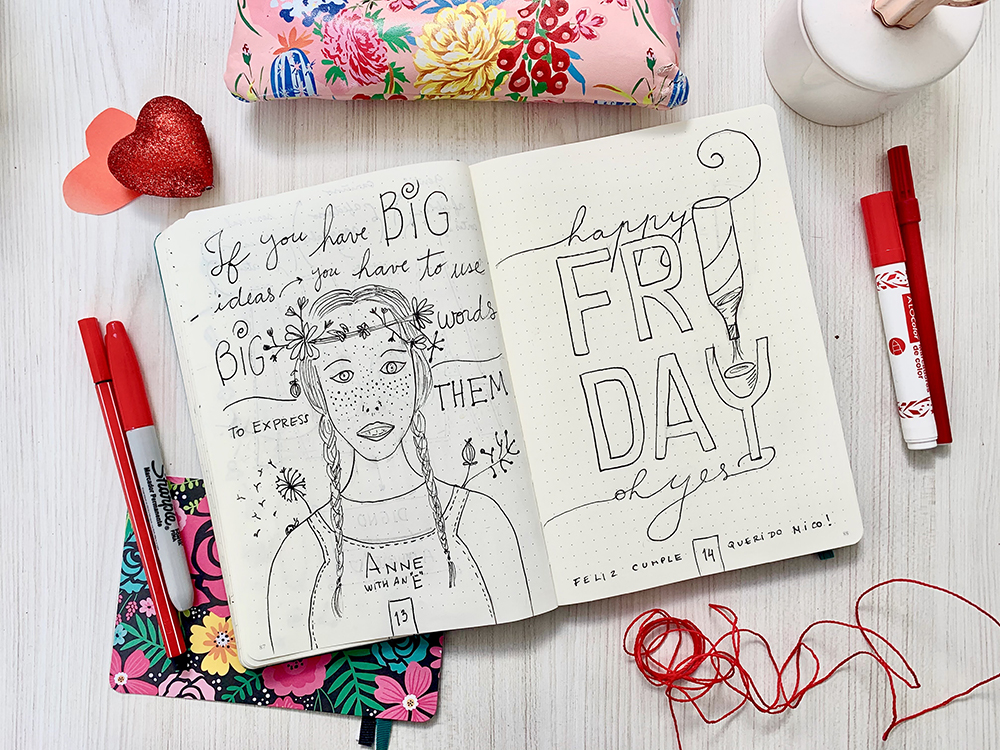 If you have BIG
ideas → you have to use
BIG words
TO EXPRESS THEM
ANNE
WITH AN "E"
13
happy
FRI
DAY
oh yes
FELIZ CUMPLE 14 QUERIDO NICO!
Sharpie
Marcador Permanente
Alocolor
de color